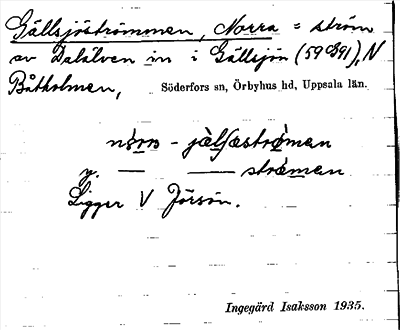 Gällsjöströmmen, Norra = ström
av Dalälven in i Gällsjön (59 G91), N
Båtholmen, Söderfors sn, Örbyhus hd, Uppsala län.
nòrrə - jæ̀lʃœströ̀mən
y. — — strö̀mən
Ligger V Jörsön.
Ingegärd Isaksson 1935.